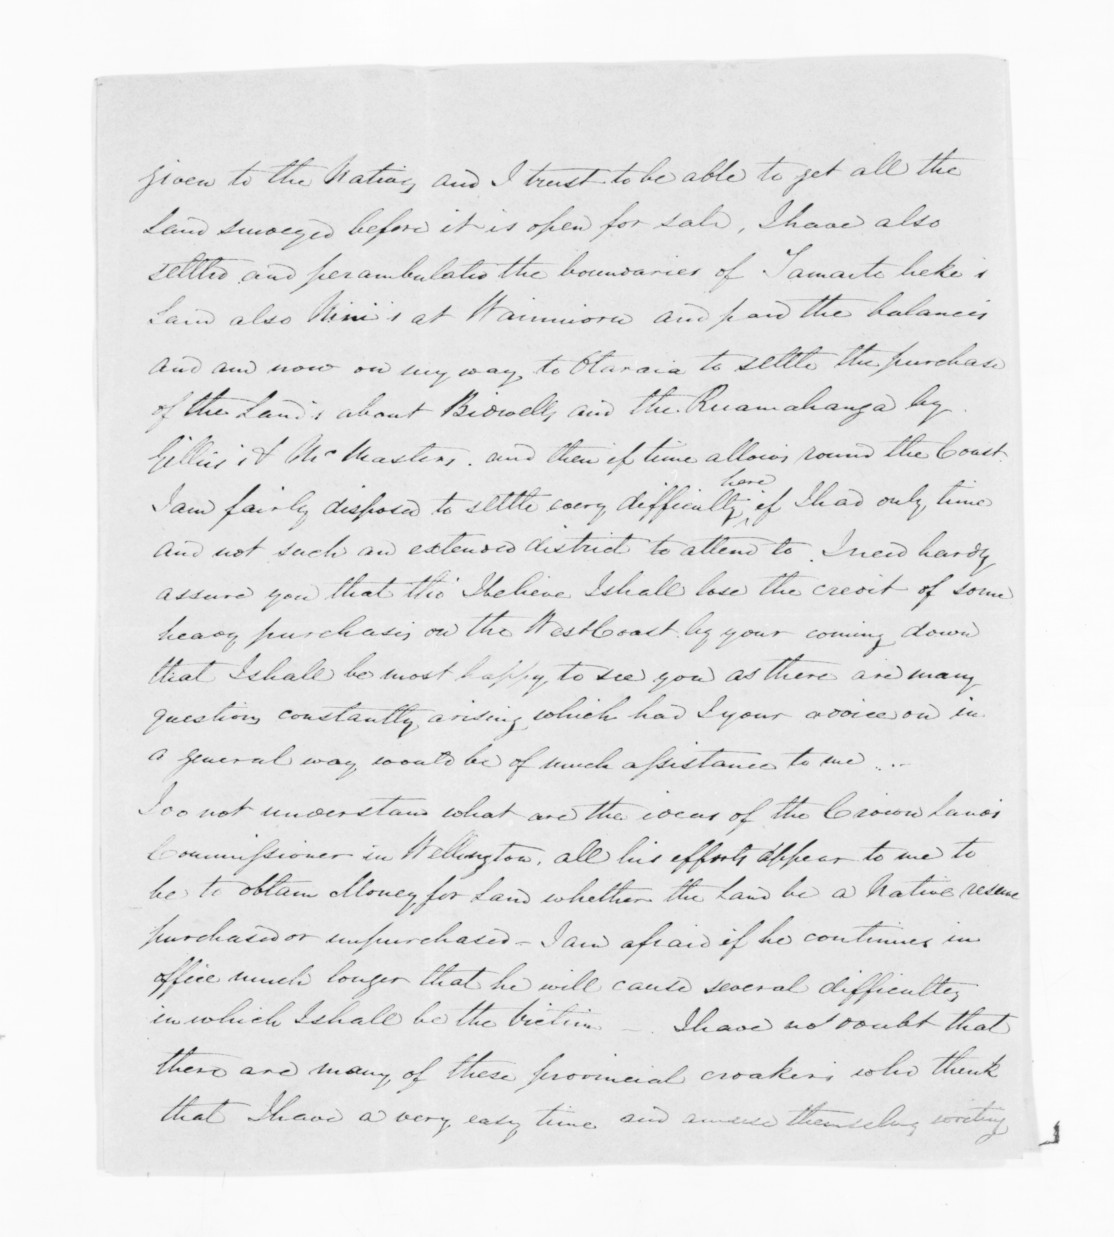 given to the Natives and I trust to be able to get all the
Land surveyed before it is open for sale, I have also
settled and perambulated the boundaries of Tamaite heke's
Land also Nini's at and paid the balances
and am now on my way to Otaraia to settle the purchase
of the Lands about Bidwells and the Ruamahanga by
Gillies's & McMasters. and then if time allows round the Coast.
I am fairly disposed to settle every difficulty here if I had only time
and not such an extended district to attend to. I need hardly
assure you that tho I believe I shall lose the credit of some
heavy purchases on the West Coast by your coming down
that I shall be most happy to see you as there are many
questions constantly arising which had I your advice on in
a general way would be of much assistance to me ...
I do not understand what are the ideas of the Crown Lands
Commissioner in Wellington, all his efforts appear to me to
be to obtain Money for Land whether the Land be a Native reserve
purchased or unpurchased - I am afraid if he continues in
office much longer that he will cause several difficulties
in which I shall be the Victim - . I have no doubt that
there are many of these provincial croakers who think
that I have a very easy time and amuse themselves writing